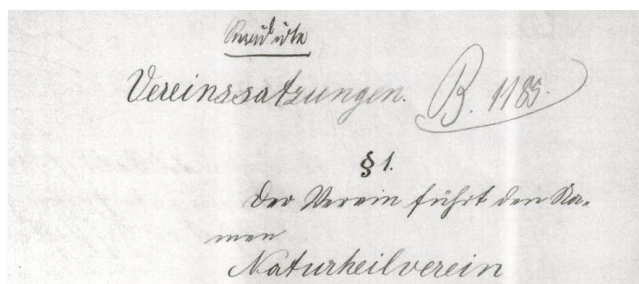 Vereinssatzungen. B. 1185.
§ 1.
Der Verein führt den Na-
men
Naturheilverein